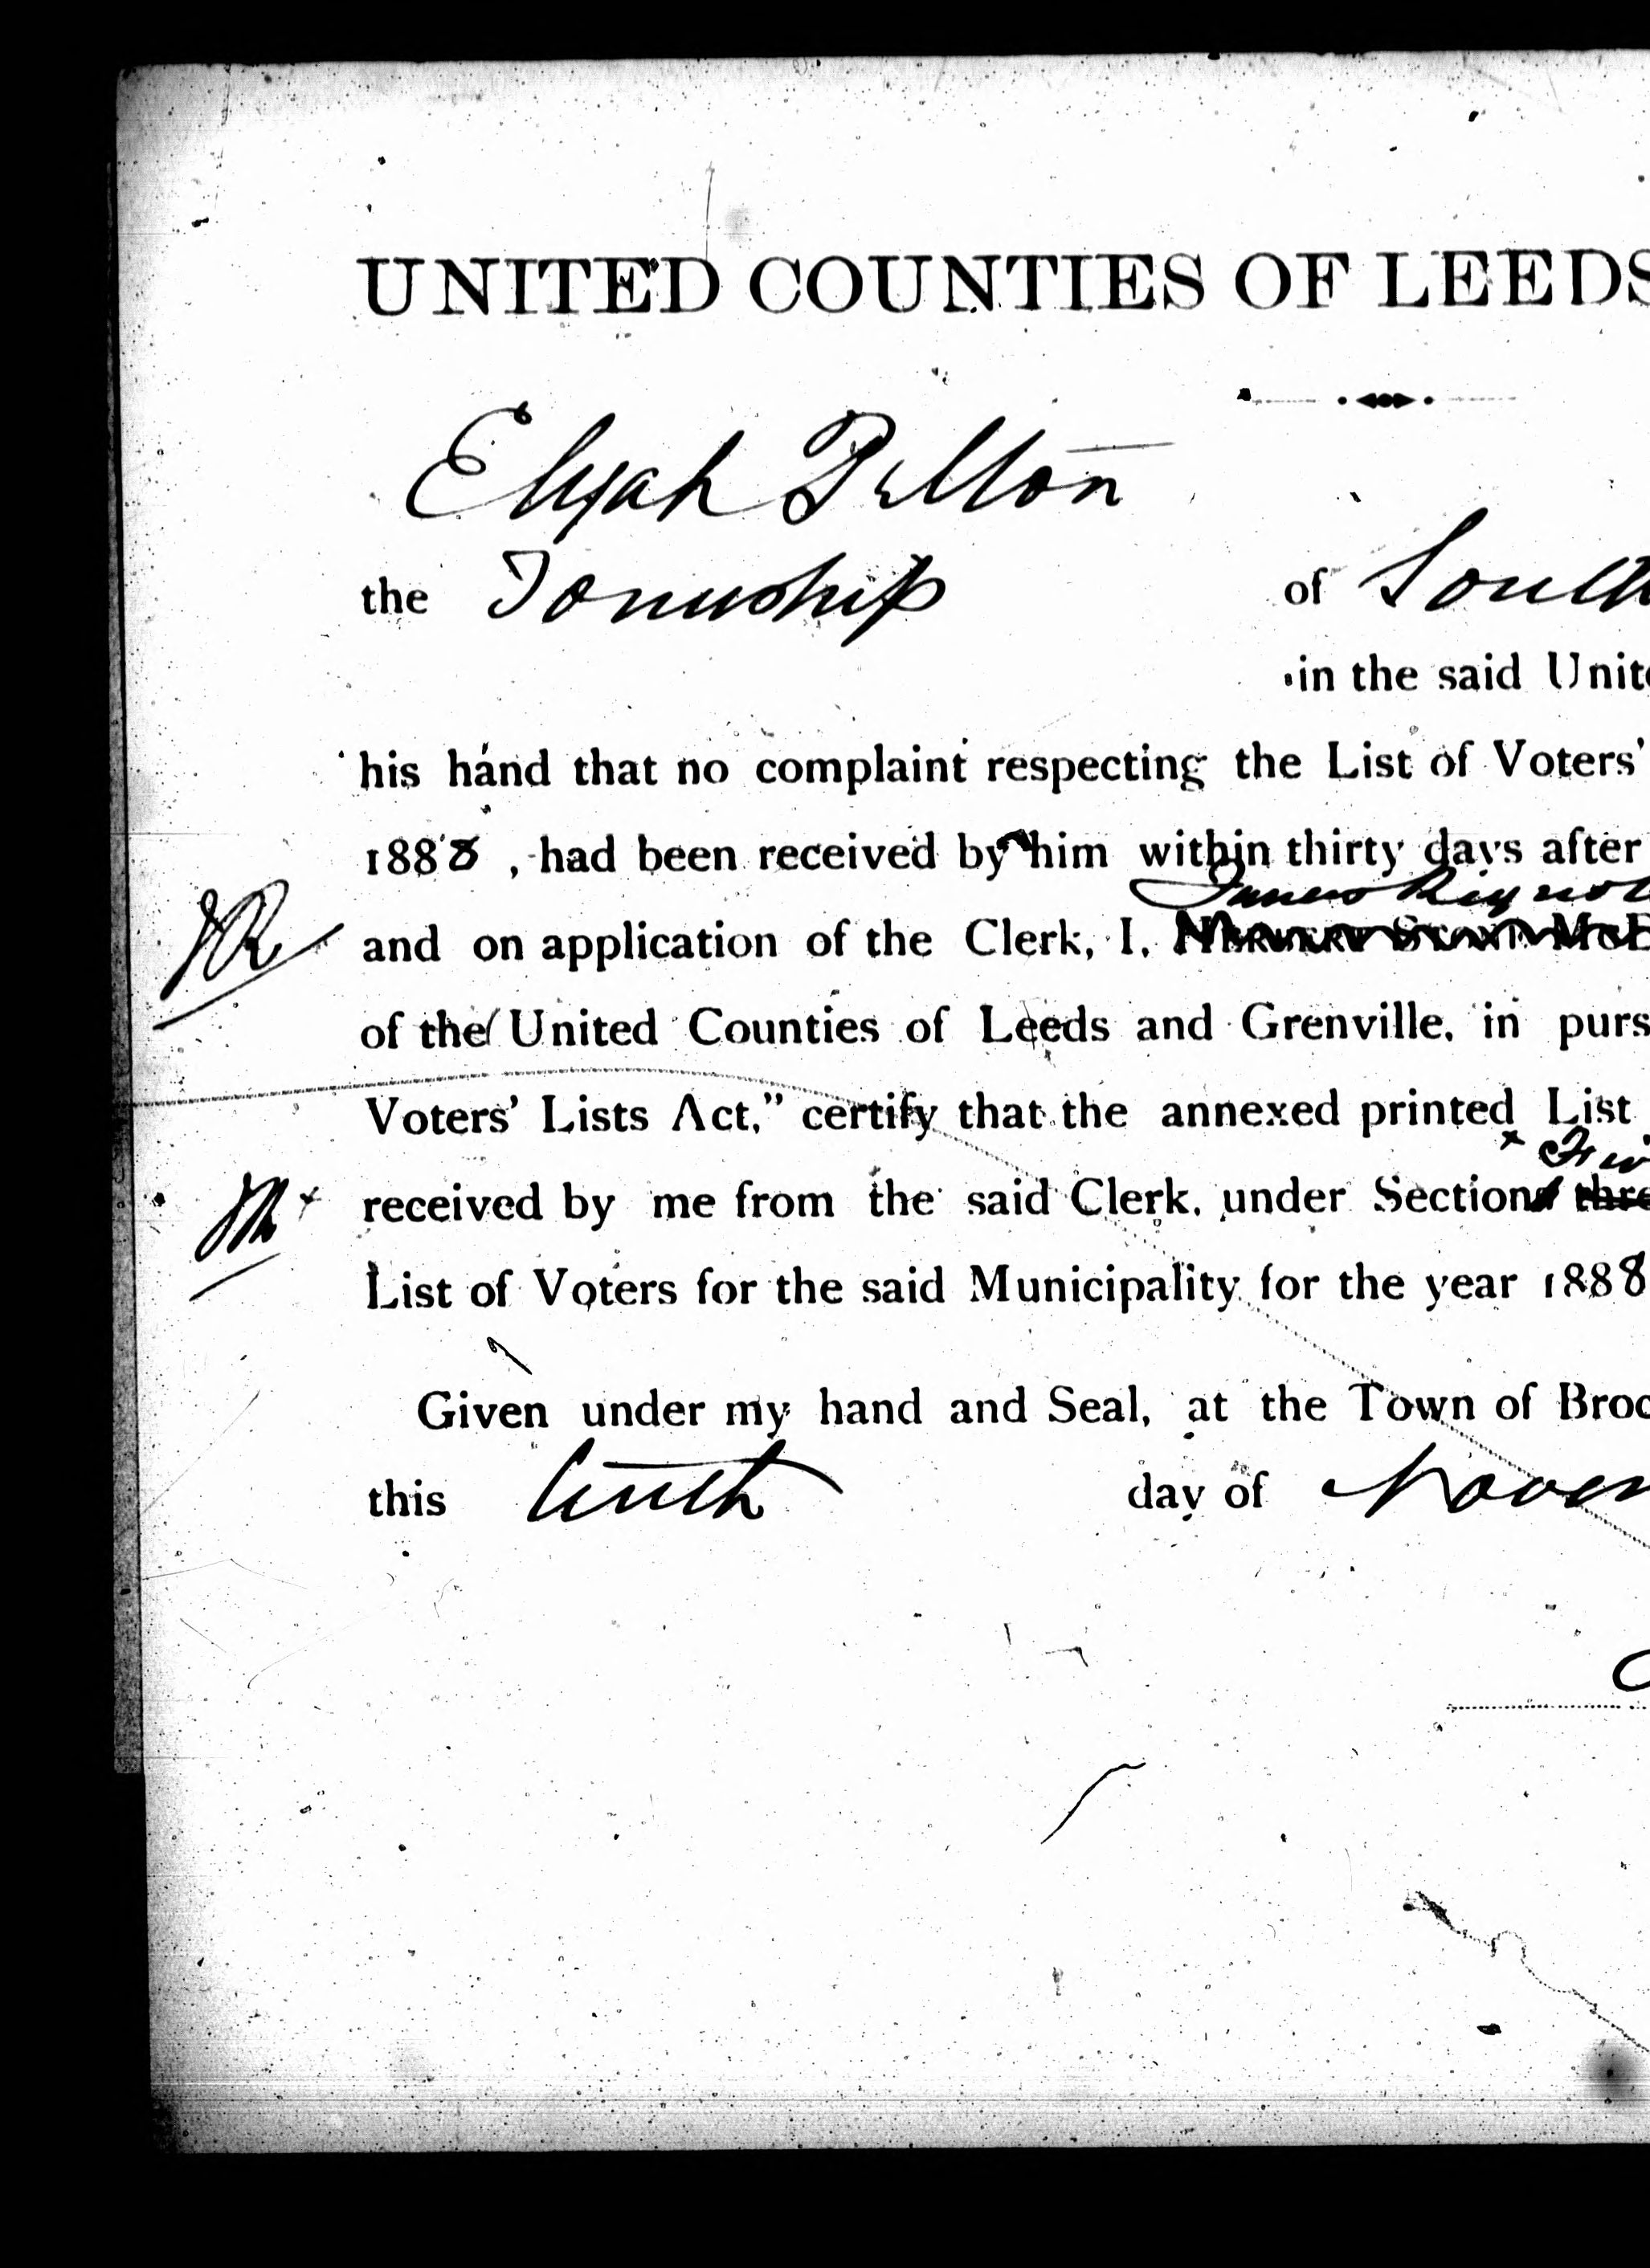 UNITED COUNTIES OF LEEDS
Elijah Pelton
the Township of South
in the said Unite
his hand that no complaint respecting the List of Voters'
1888, had been received by him within thirty days after
James Reynol
and on application of the Clerk, I, HERBERT STONE McD
of the United Counties of Leeds and Grenville, in purs
Voters' Lists Act," certify that the annexed printed List
received by me from the said Clerk, under Section thre
List of Voters for the said Municipality for the year 1888
Given under my hand and Seal, at the Town of Broc
this tenth day of Novem
JR
JR